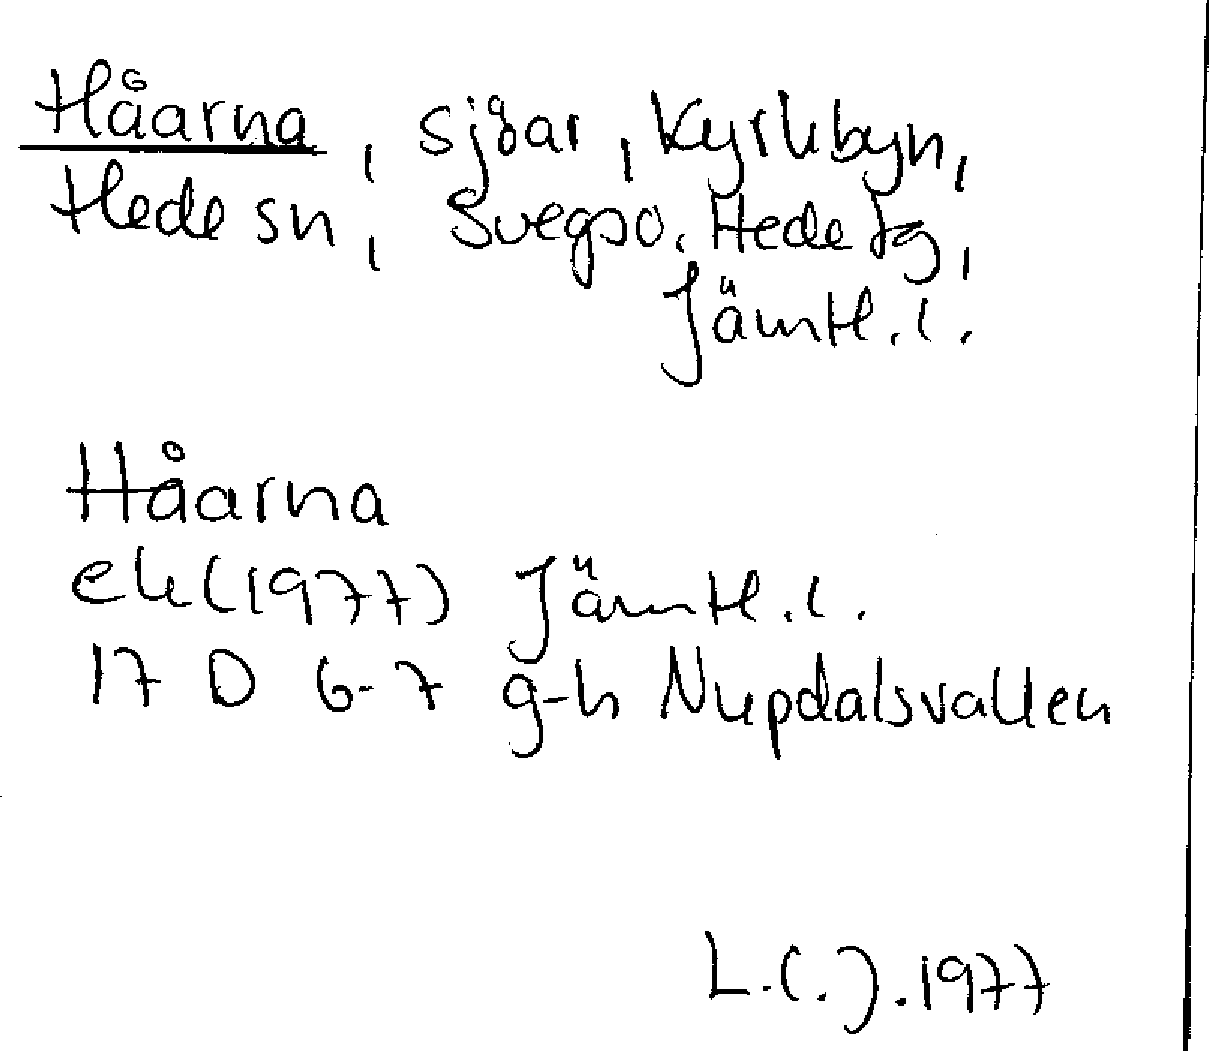 Håarna, sjöar, Kyrkbyn,
Hede sn, Svegs o. Hede tg,
Jämtl. l.
Håarna
ek (1977) Jämtl. l.
17 D 6-7 g-h Nupdalsvallen
L. (.). 1977